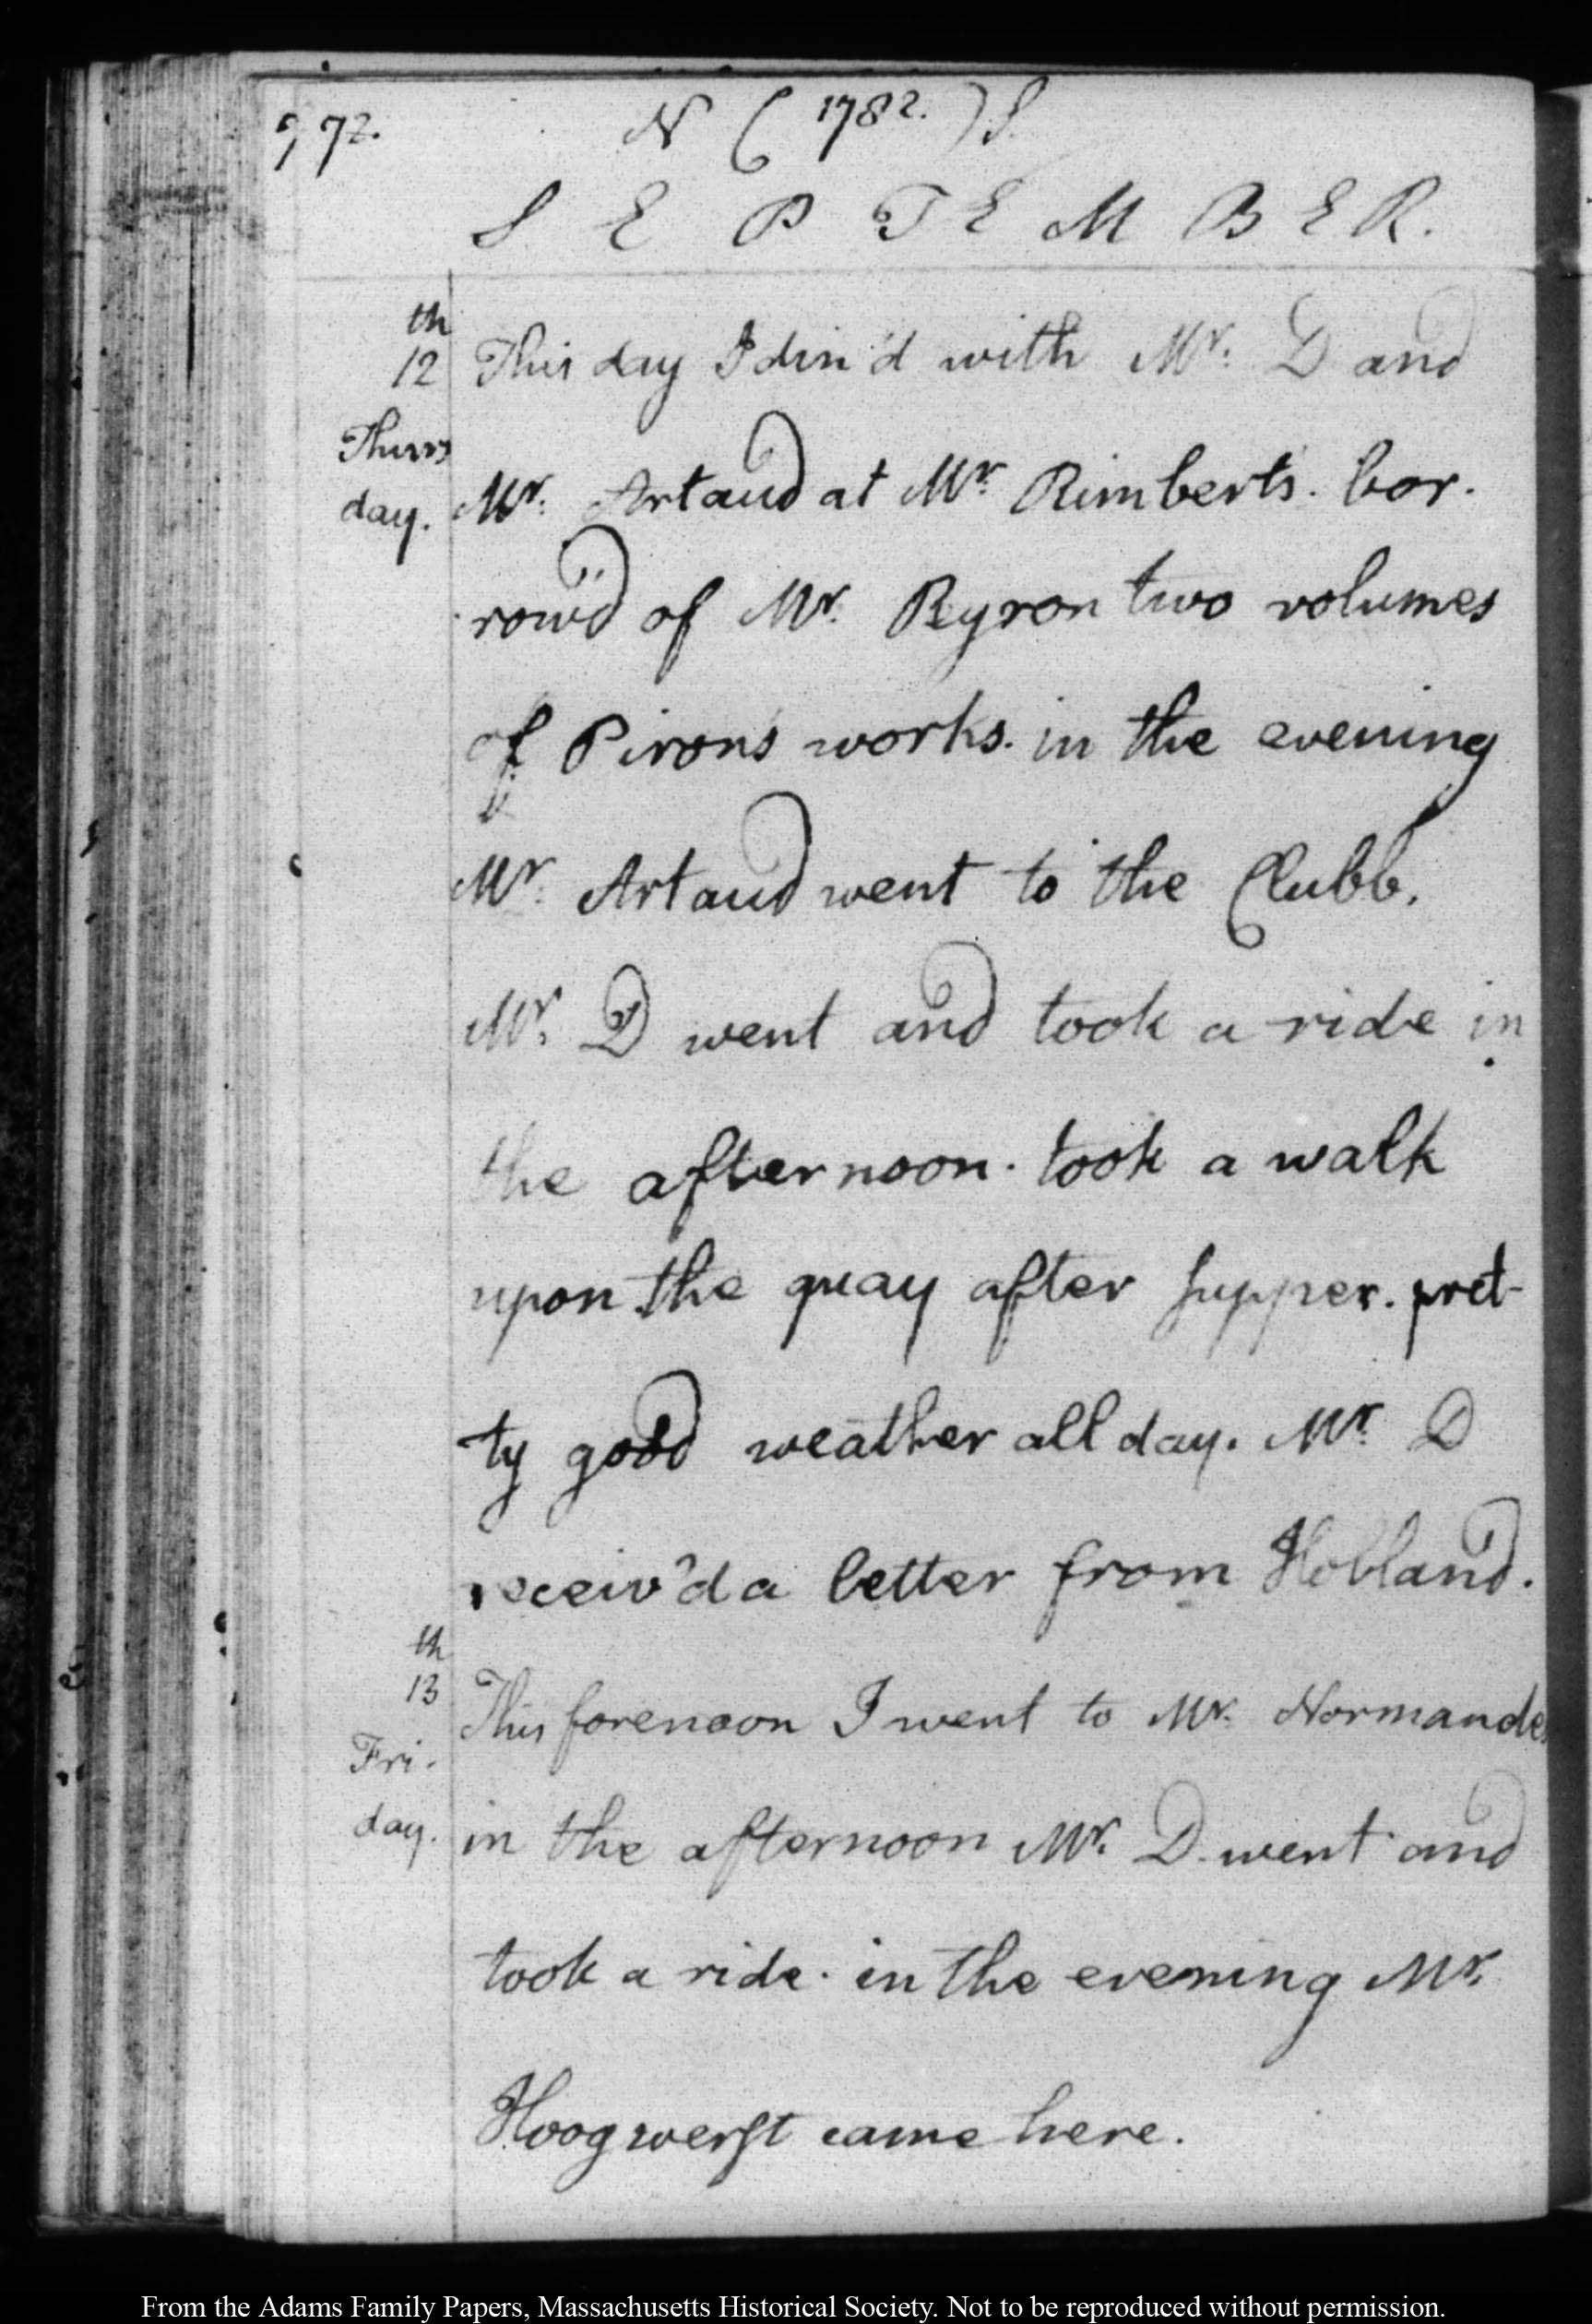 972.
N (1782.) S.
SEPTEMBER.
th
12 This day I din'd with Mr. D and
Thurs
day. Mr. Artaud at Mr. Rimberts. bor.
row'd of Mr. Ryron two volumes
of Pirons works. in the evening
Mr. Artaud went to the Clubb.
Mr. D went and took a ride in
the afternoon. took a walk
upon the quay after supper. pret-
ty good weather all day. Mr. D
receiv'd a letter from Holland.
th
13 This forenoon I went to Mr. Normandes
Fri.
day. in the afternoon Mr. D. went and
took a ride. in the evening Mr.
Hoogwerft came here.
From the Adams Family Papers, Massachusetts Historical Society. Not to be reproduced without permission.